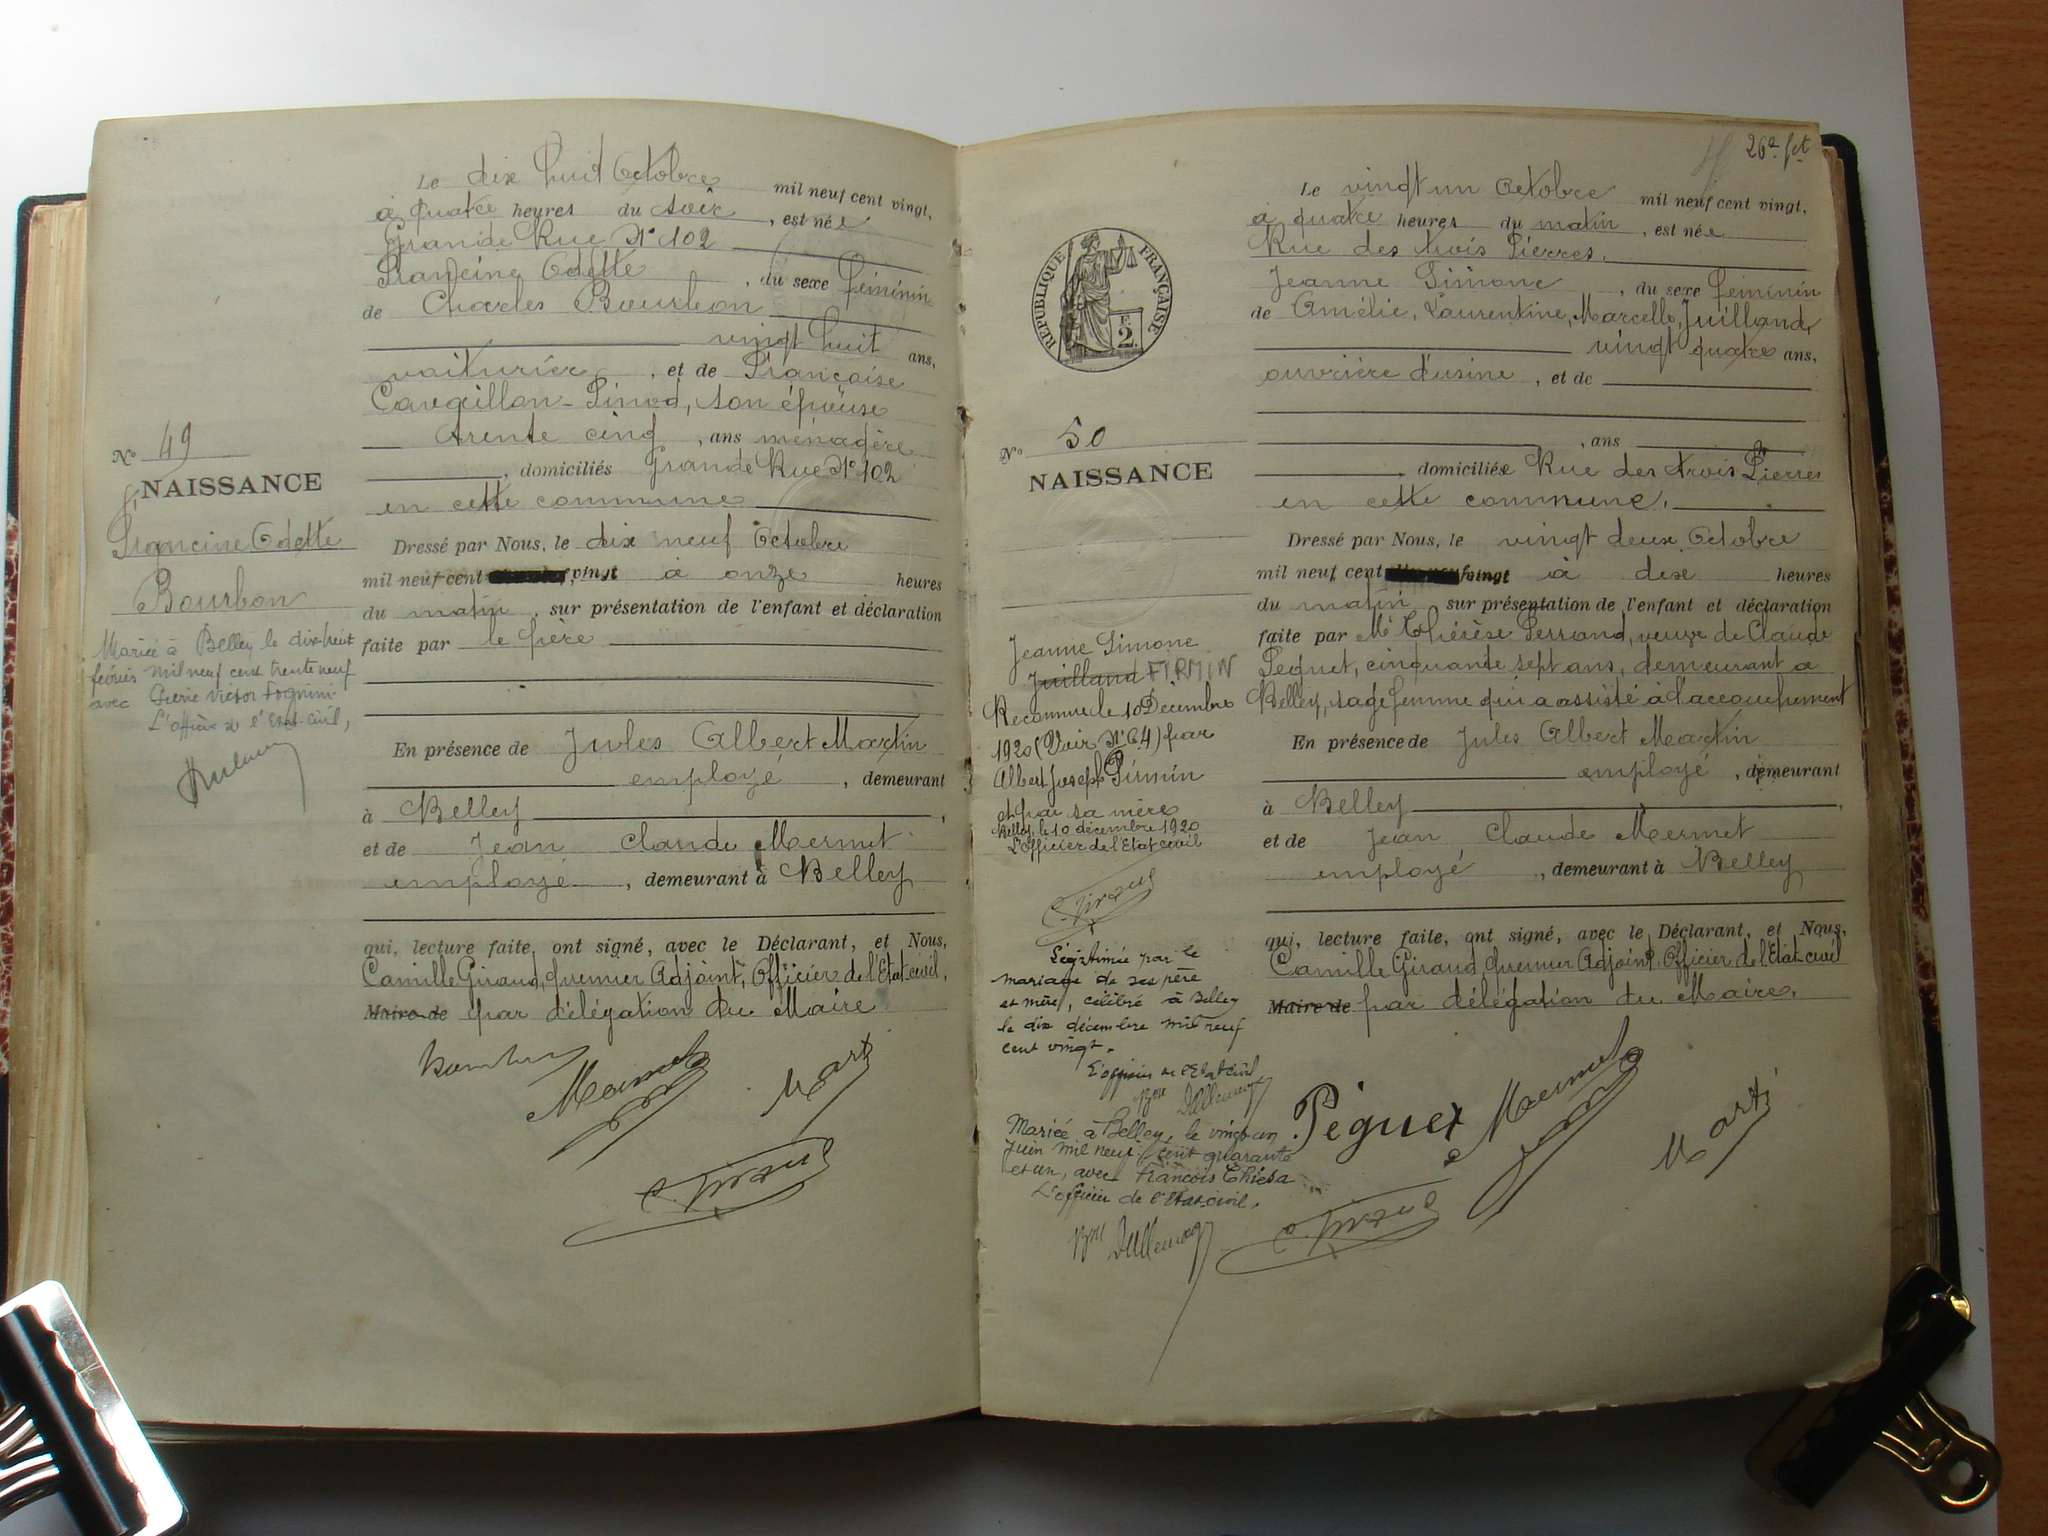 Le dix huit Octobre mil neuf cent vingt,
à quatre heures du soir, est née
Grande Rue N° 102
Francine Odette, du sexe féminin
de Charles Bourbon
vingt huit ans,
voiturier, et de Françoise
Cavaillon-Pinod, son épouse
trente cinq, ans ménagère
, domiciliés Grande Rue N° 102
en cette commune
N° 49
NAISSANCE
Francine Odette
Bourbon
Mariée à Belley le dix-huit
février mil neuf cent trente neuf
avec Pierre Victor Fognini
L'officier de l'Etat-civil,
Dressé par Nous, le dix neuf Octobre
mil neuf cent vingt à onze heures
du matin, sur présentation de l'enfant et déclaration
faite par le père
En présence de Jules Albert Martin
employé, demeurant
à Belley,
et de Jean Claude Mermet
employé, demeurant à Belley
qui, lecture faite, ont signé, avec le Déclarant, et Nous,
Camille Giraud, premier Adjoint, Officier de l'Etat-civil,
Maire de par délégation du Maire
Mermet
Mart
C. Giraud
26e fet
Le vingt un Octobre mil neuf cent vingt,
à quatre heures du matin, est née
Rue des trois Pierres.
Jeanne Simone, du sexe féminin
de Amélie, Laurentine, Marcelle, Juilland,
vingt quatre ans,
ouvrière d'usine, et de
, ans
, domiciliée Rue des trois Pierres
en cette commune.
RÉPUBLIQUE FRANÇAISE
F.
2
N° 50
NAISSANCE
Jeanne Simone
Juilland FIRMIN
Reconnue le 10 Décembre
1920 (Voir N° 64) par
Albert Joseph Firmin
et par sa mère
Belley, le 10 décembre 1920
L'Officier de l'Etat civil
C. Giraud
Légitimée par le
mariage de ses père
et mère, célébré à Belley
le dix décembre mil neuf
cent vingt.
L'officier de l'Etat civil
Mariée à Belley, le vingt un
Juin mil neuf cent quarante
et un, avec François Chiesa
L'officier de l'Etat-civil.
Dressé par Nous, le vingt deux Octobre
mil neuf cent vingt à dix heures
du matin sur présentation de l'enfant et déclaration
faite par Me Thérèse Perrand, veuve de Claude
Peguet, cinquante sept ans, demeurant à
Belley, sage femme qui a assisté à l'accouchement
En présence de Jules Albert Martin
employé, demeurant
à Belley,
et de Jean Claude Mermet
employé, demeurant à Belley
qui, lecture faite, ont signé, avec le Déclarant, et Nous,
Camille Giraud, premier Adjoint, Officier de l'Etat-civil
Maire de par délégation du Maire.
Péguet
Mermet
Mart
C. Giraud